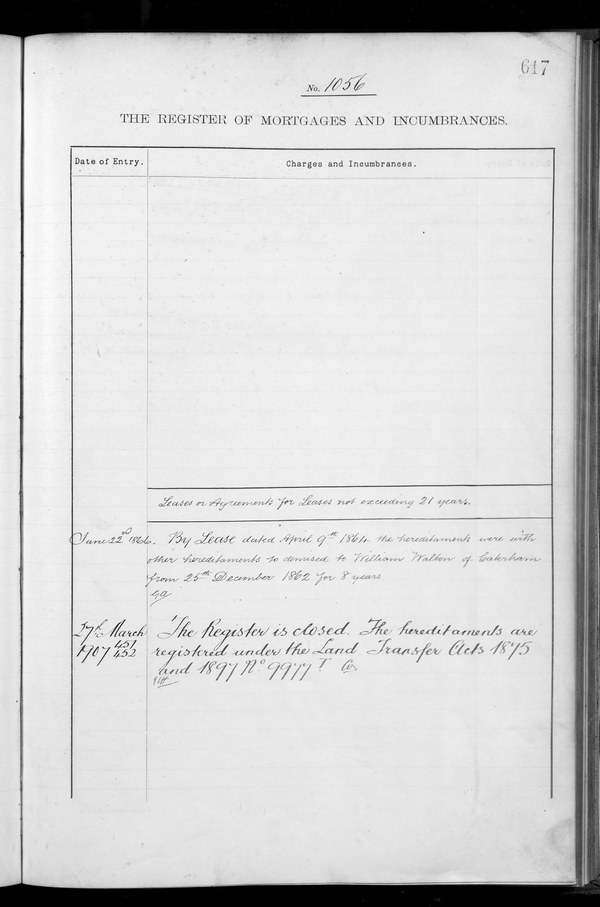 617
No. 1056
THE REGISTER OF MORTGAGES AND INCUMBRANCES.
Date of Entry.
Charges and Incumbrances.
Leases or Agreements for Leases not exceeding 21 years.
June 22nd 1866. By Lease dated April 9th 1864 the hereditaments were with
other hereditaments so demised to William Walton of Caterham
from 25th December 1862 for 8 years.
27th March The Register is closed. The hereditaments are
1907 451 452 registered under the Land Transfer Acts 1875
and 1897 No 9977 T